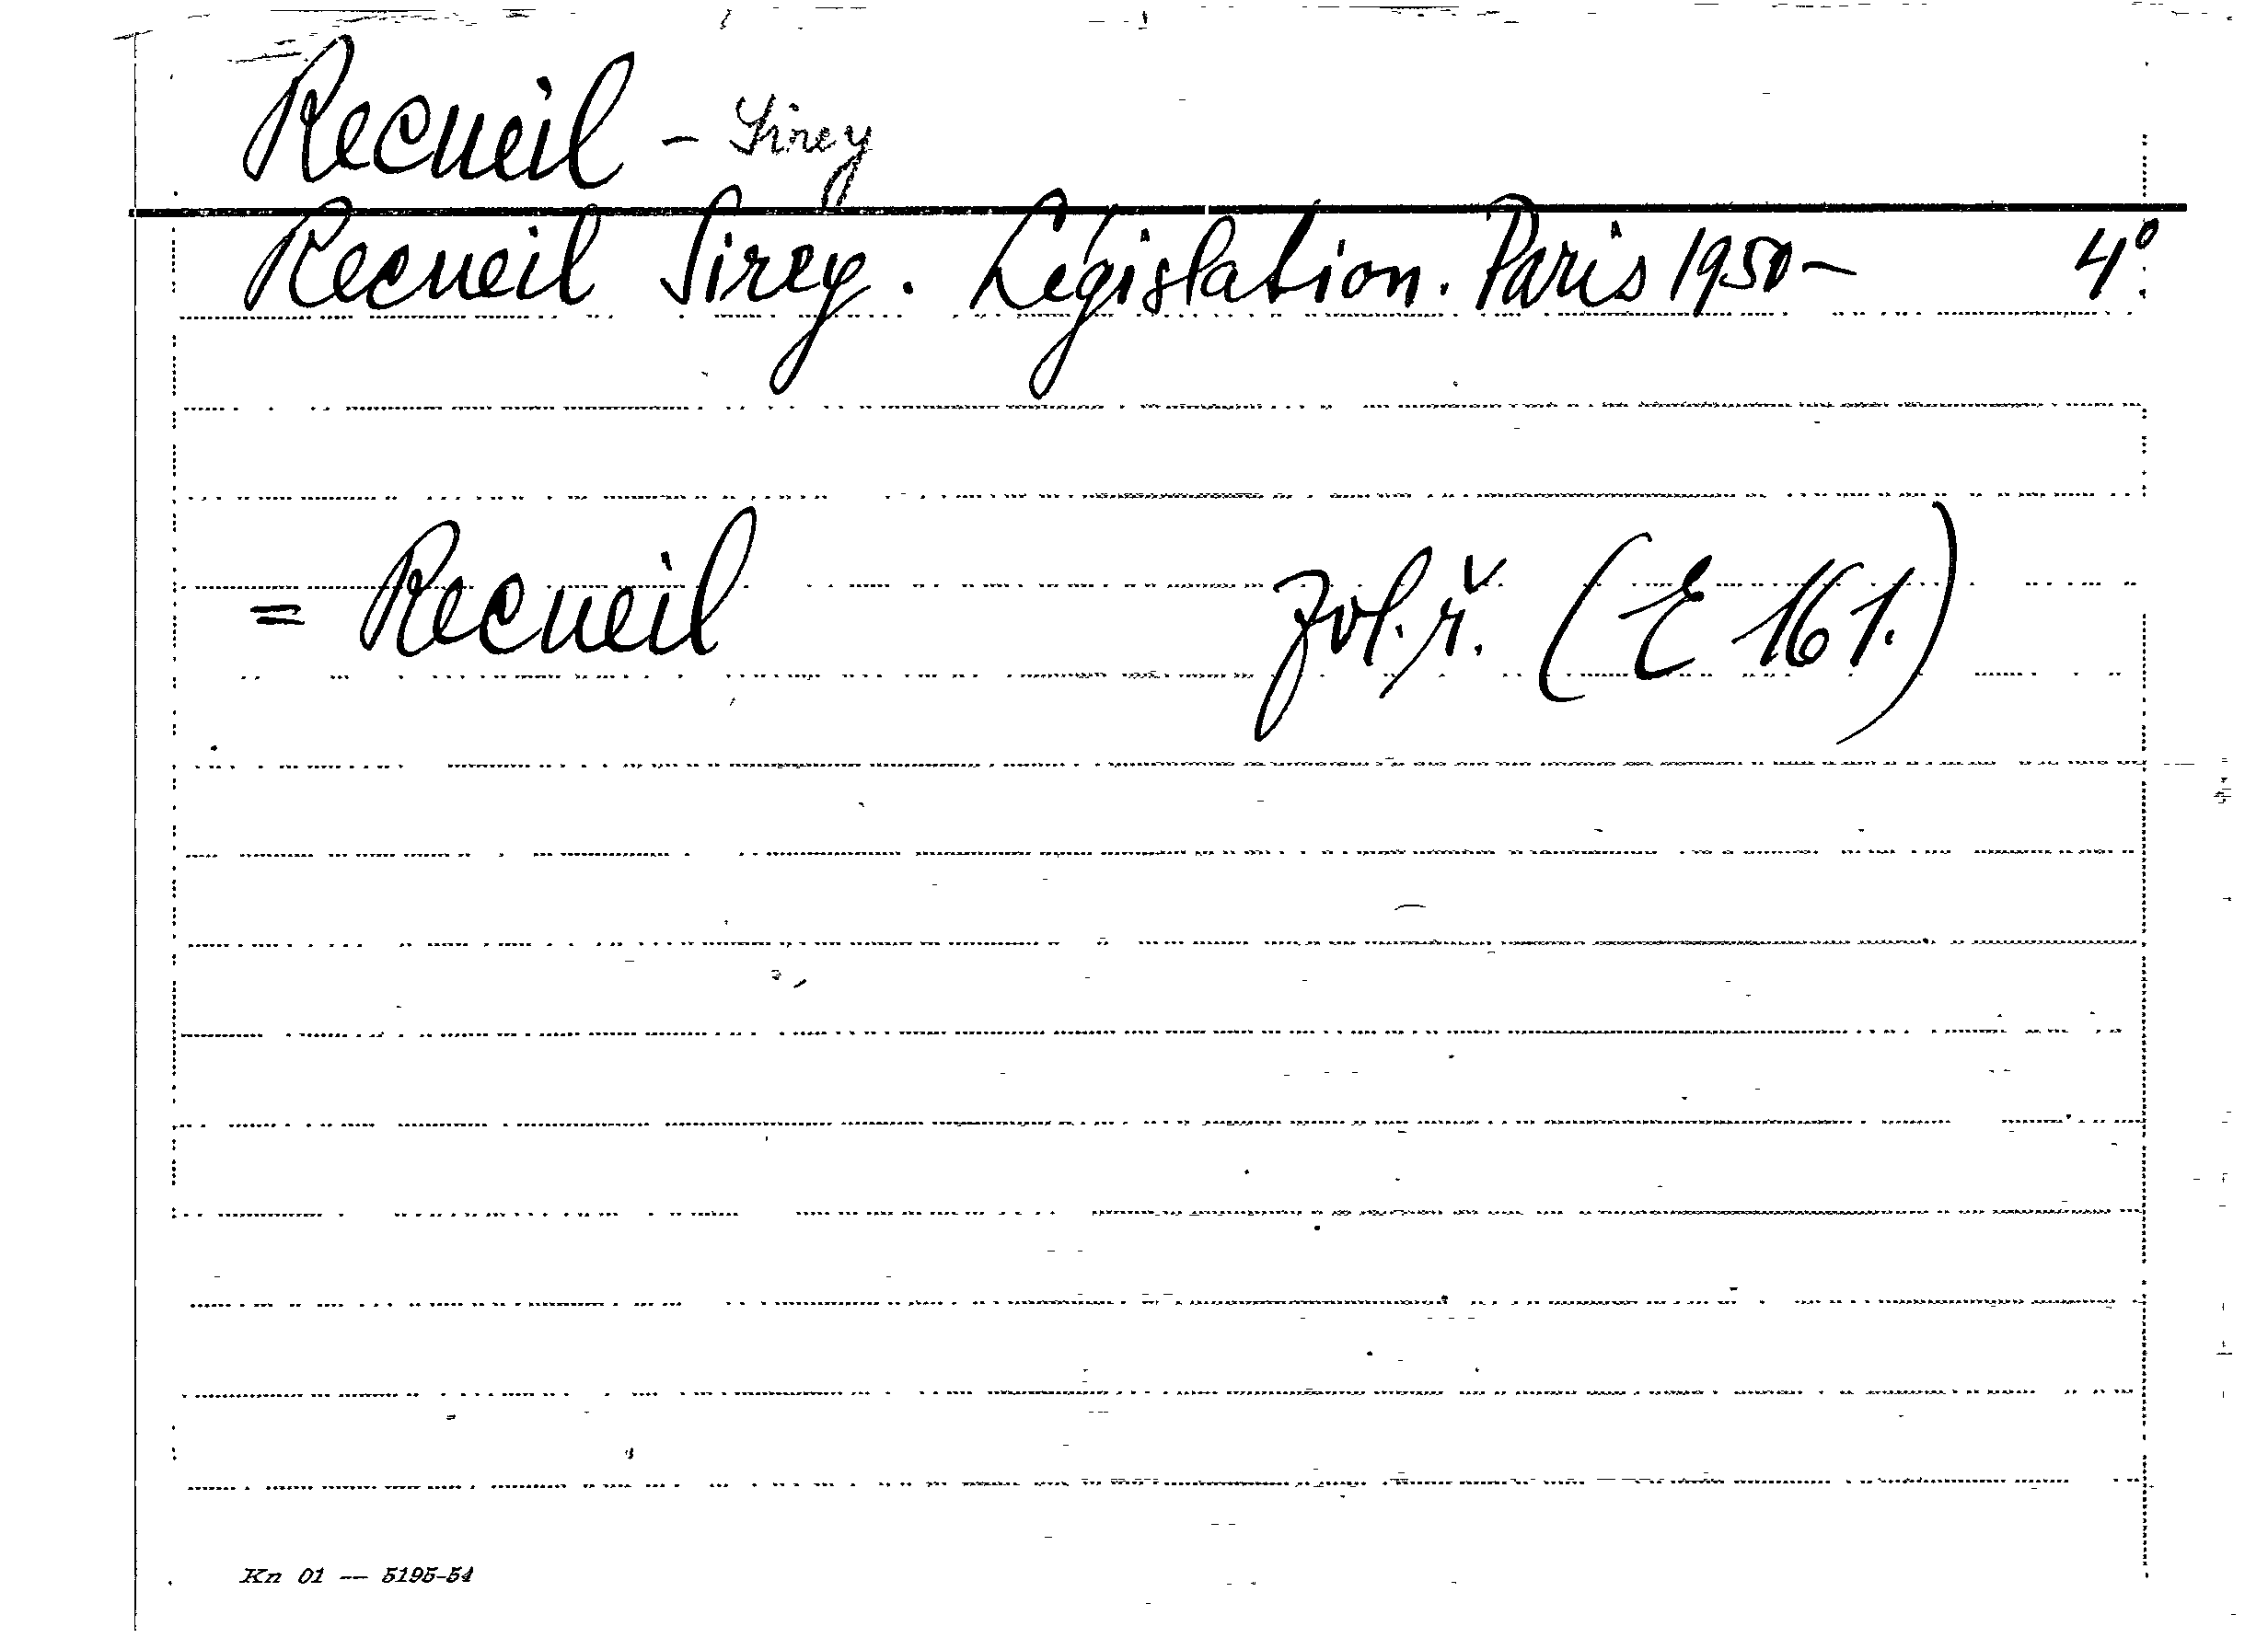 Recueil - Sirey
Recueil Sirey. Législation. Paris 1950- 4°.
= Recueil zvl. ř. (E 161.)
Kn 01 — 5195-54